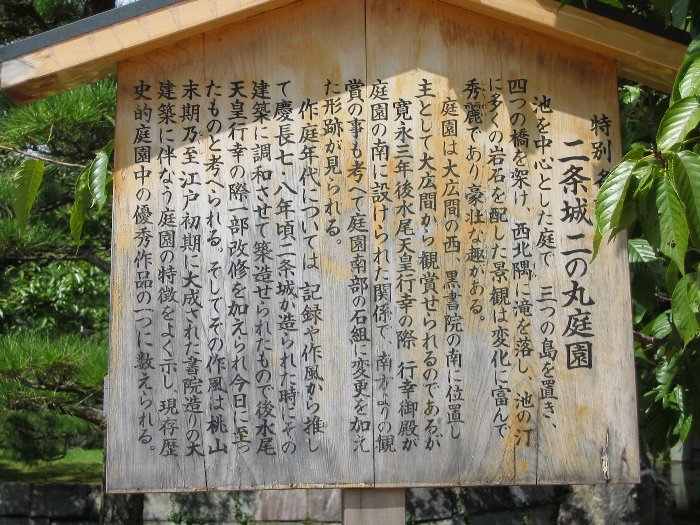 特別名
二条城 二の丸庭園
池を中心とした庭で 三つの島を置き、
四つの橋を架け、西北隅に滝を落し、池の汀
に多くの岩石を配した景観は変化に富んで
秀麗であり豪壮な趣がある。
庭園は大広間の西、黒書院の南に位置し
主として大広間から観賞せられるのであるが
寛永三年後水尾天皇行幸の際 行幸御殿が
庭園の南に設けられた関係で、南方よりの観
賞の事も考へて庭園南部の石組に変更を加え
た形跡が見られる。
作庭年代については 記録や作風から推し
て慶長七、八年頃二条城が造られた時にその
建築に調和させて築造せられたもので後水尾
天皇行幸の際一部改修を加えられ今日に至っ
たものと考へられる。そしてその作風は桃山
末期乃至江戸初期に大成された書院造りの大
建築に伴なう庭園の特徴をよく示し、現存歴
史的庭園中の優秀作品の一つに数えられる。